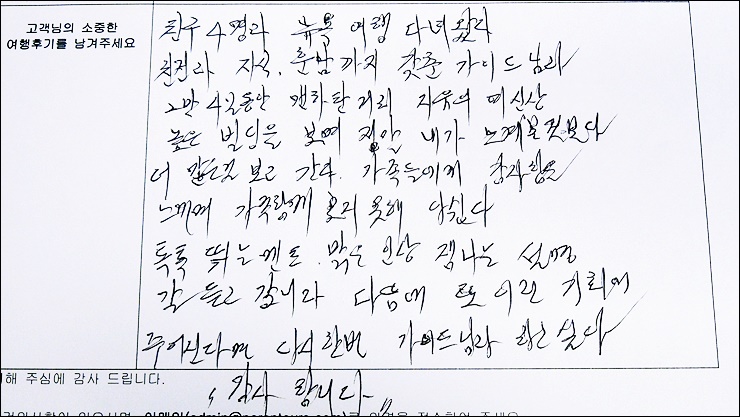 고객님의 소중한
여행후기를 남겨주세요
친구 4명과 뉴욕 여행 다녀왔다
친절과 지식, 훈남까지 갖춘 가이드님과
3박 4일동안 맨하탄거리 자유의 여신상
높은 빌딩을 보며 정말 내가
더 보고 간다. 가족들에게 감사함을
느끼며 가족함께 오지 못해 아쉽다
톡톡 튀는 멘트. 맑은 인상 잼나는 설명
잘 듣고 갑니다 다음에 또 이런 기회에
주어진다면 다시한번 가이드님과 하고 싶다
해 주심에 감사 드립니다.
감사 합니다